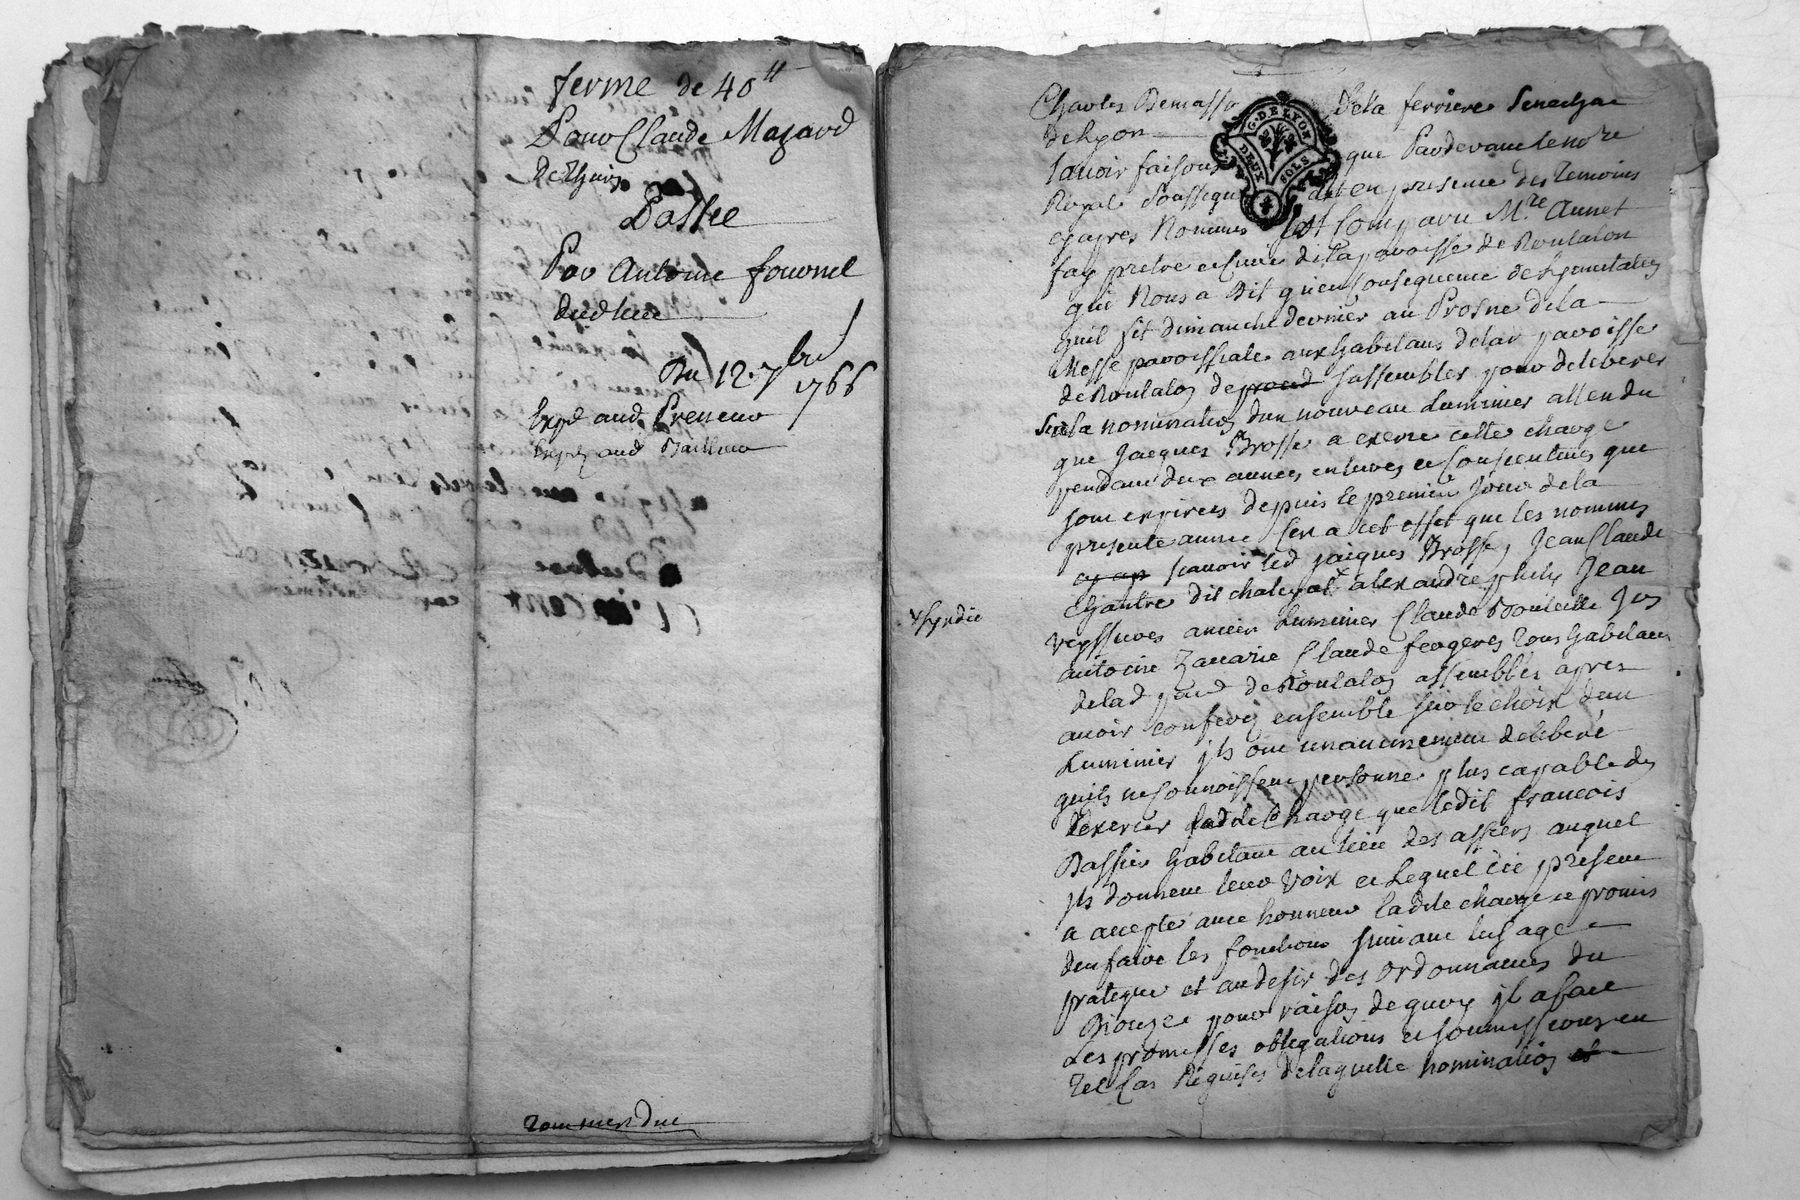 ferme de 40tt
Pour Claude Mazard
de Thuis
Passée
Par Antoine fournel
dud lieu
Du 12. 7bre 1766
Expé aud Preneur
Expé aud Bailleur
Charles Demasso Dela ferriere Senechal
de Lyon
G. DE LYON
DEUX SOLS
Scavoir faisons que Pardevant le nore
Royal Soussigné et en presence des Temoins
cy apres Nommés Est Comparu Mre Annet
fay pretre et Curé de la paroisse de Rontalon
qui Nous a Dit qu'en Consequence de
quil fit dimanche dernier au Prosne dela
Messe paroissiale aux habitans de lad paroisse
de Rontalon de prend sassembler pour deliberer
Sur la nomination dun nouveau Luminier attendu
que Jacques Brosse a exercé cette charge
pendant deux années entieres et consecutives que
sont expirées depuis le premier Jour de la
presente année Cen a cet effet que les nommés
cy ap scavoir led Jacques Brosse, Jean Claude
Chantre dit chatenat x alexandre phily Jean
x syndic
veyssieres ancien Luminier Claude Bouteille
antoine Zacarie Claude feogeres Tous habitans
de lad par de Rontalon assemblés apres
avoir conferé ensemble sur le choix dun
Luminier ils ont unanimement deliberé
quils ne connoissent personne plus capable de
dexercer lad de Charge que ledit francois
Bassier habitant au lieu des assiers auquel
ils donnent leur voix et Lequel icy present
a accepté avec honneur ladite charge et promis
den faire les fonctions suivant lusage
pratique et au desir des ordonnances du
Dioceze pour raison de quoy il a fait
Les promesses obligations et soumissions en
Tel Cas Requises de laquelle nomination et